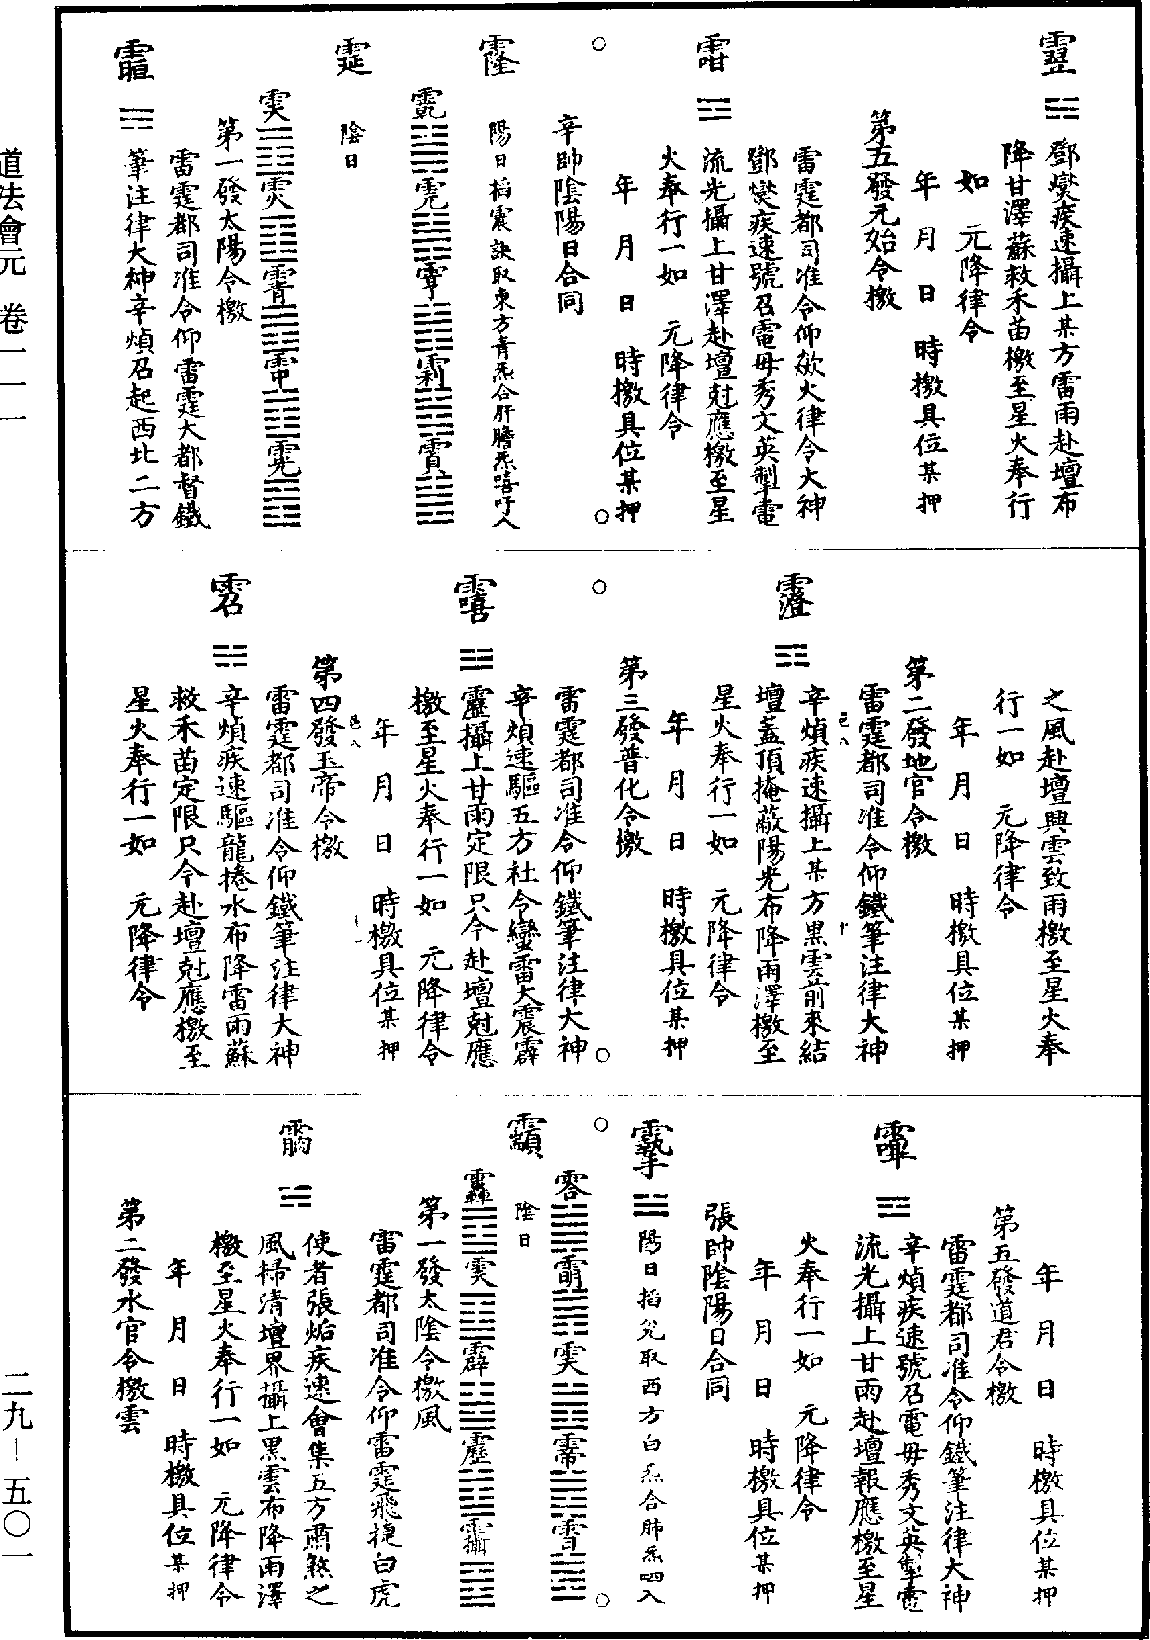 鄧燮疾速攝上某方雷雨赴壇布
降甘澤蘇救禾苗檄至星火奉行
如　元降律令
年　月　日　時檄具位某押
第五發元始令檄
雷霆都司准令仰欻火律令大神
鄧燮疾速號召電母秀文英掣電
流光攝上甘澤赴壇尅應檄至星
火奉行一如　元降律令
年　月　日　時檄具位某押
○　○
辛帥陰陽日合同
陽日掐震訣取東方青炁合肝膽炁嘻吁入
陰日
第一發太陽令檄
雷霆都司准令仰雷霆大都督鐵
筆注律大神辛煩召起西北二方
之風赴壇興雲致雨檄至星火奉
行一如　元降律令
年　月　日　時檄具位某押
第二發地官令檄
雷霆都司准令仰鐵筆注律大神
辛煩疾速攝上某方黑雲前來結
壇蓋頂掩蔽陽光布降雨澤檄至
星火奉行一如　元降律令
年　月　日　時檄具位某押
第三發普化令檄
○　○
雷霆都司准令仰鐵筆注律大神
辛煩速驅五方社令蠻雷大震霹
靂攝上甘雨定限只今赴壇尅應
檄至星火奉行一如　元降律令
年　月　日　時檄具位某押
第四發玉帝令檄
雷霆都司准令仰鐵筆注律大神
辛煩疾速驅龍捲水布降雷雨蘇
救禾苗定限只今赴壇尅應檄至
星火奉行一如　元降律令
年　月　日　時檄具位某押
第五發道君令檄
雷霆都司准令仰鐵筆注律大神
辛煩疾速號召電母秀文英掣電
流光攝上甘雨赴壇報應檄至星
火奉行一如　元降律令
年　月　日　時檄具位某押
張帥陰陽日合同
陽日掐兌取西方白炁合肺炁呬入
○　○
陰日
第一發太陰令檄風
雷霆都司准令仰雷霆飛捷白虎
使者張㛗疾速會集五方肅煞之
風掃清壇界攝上黑雲布降雨澤
檄至星火奉行一如　元降律令
年　月　日　時檄具位某押
第二發水官令檄雲
道法會元　卷一一一
二九－五〇一